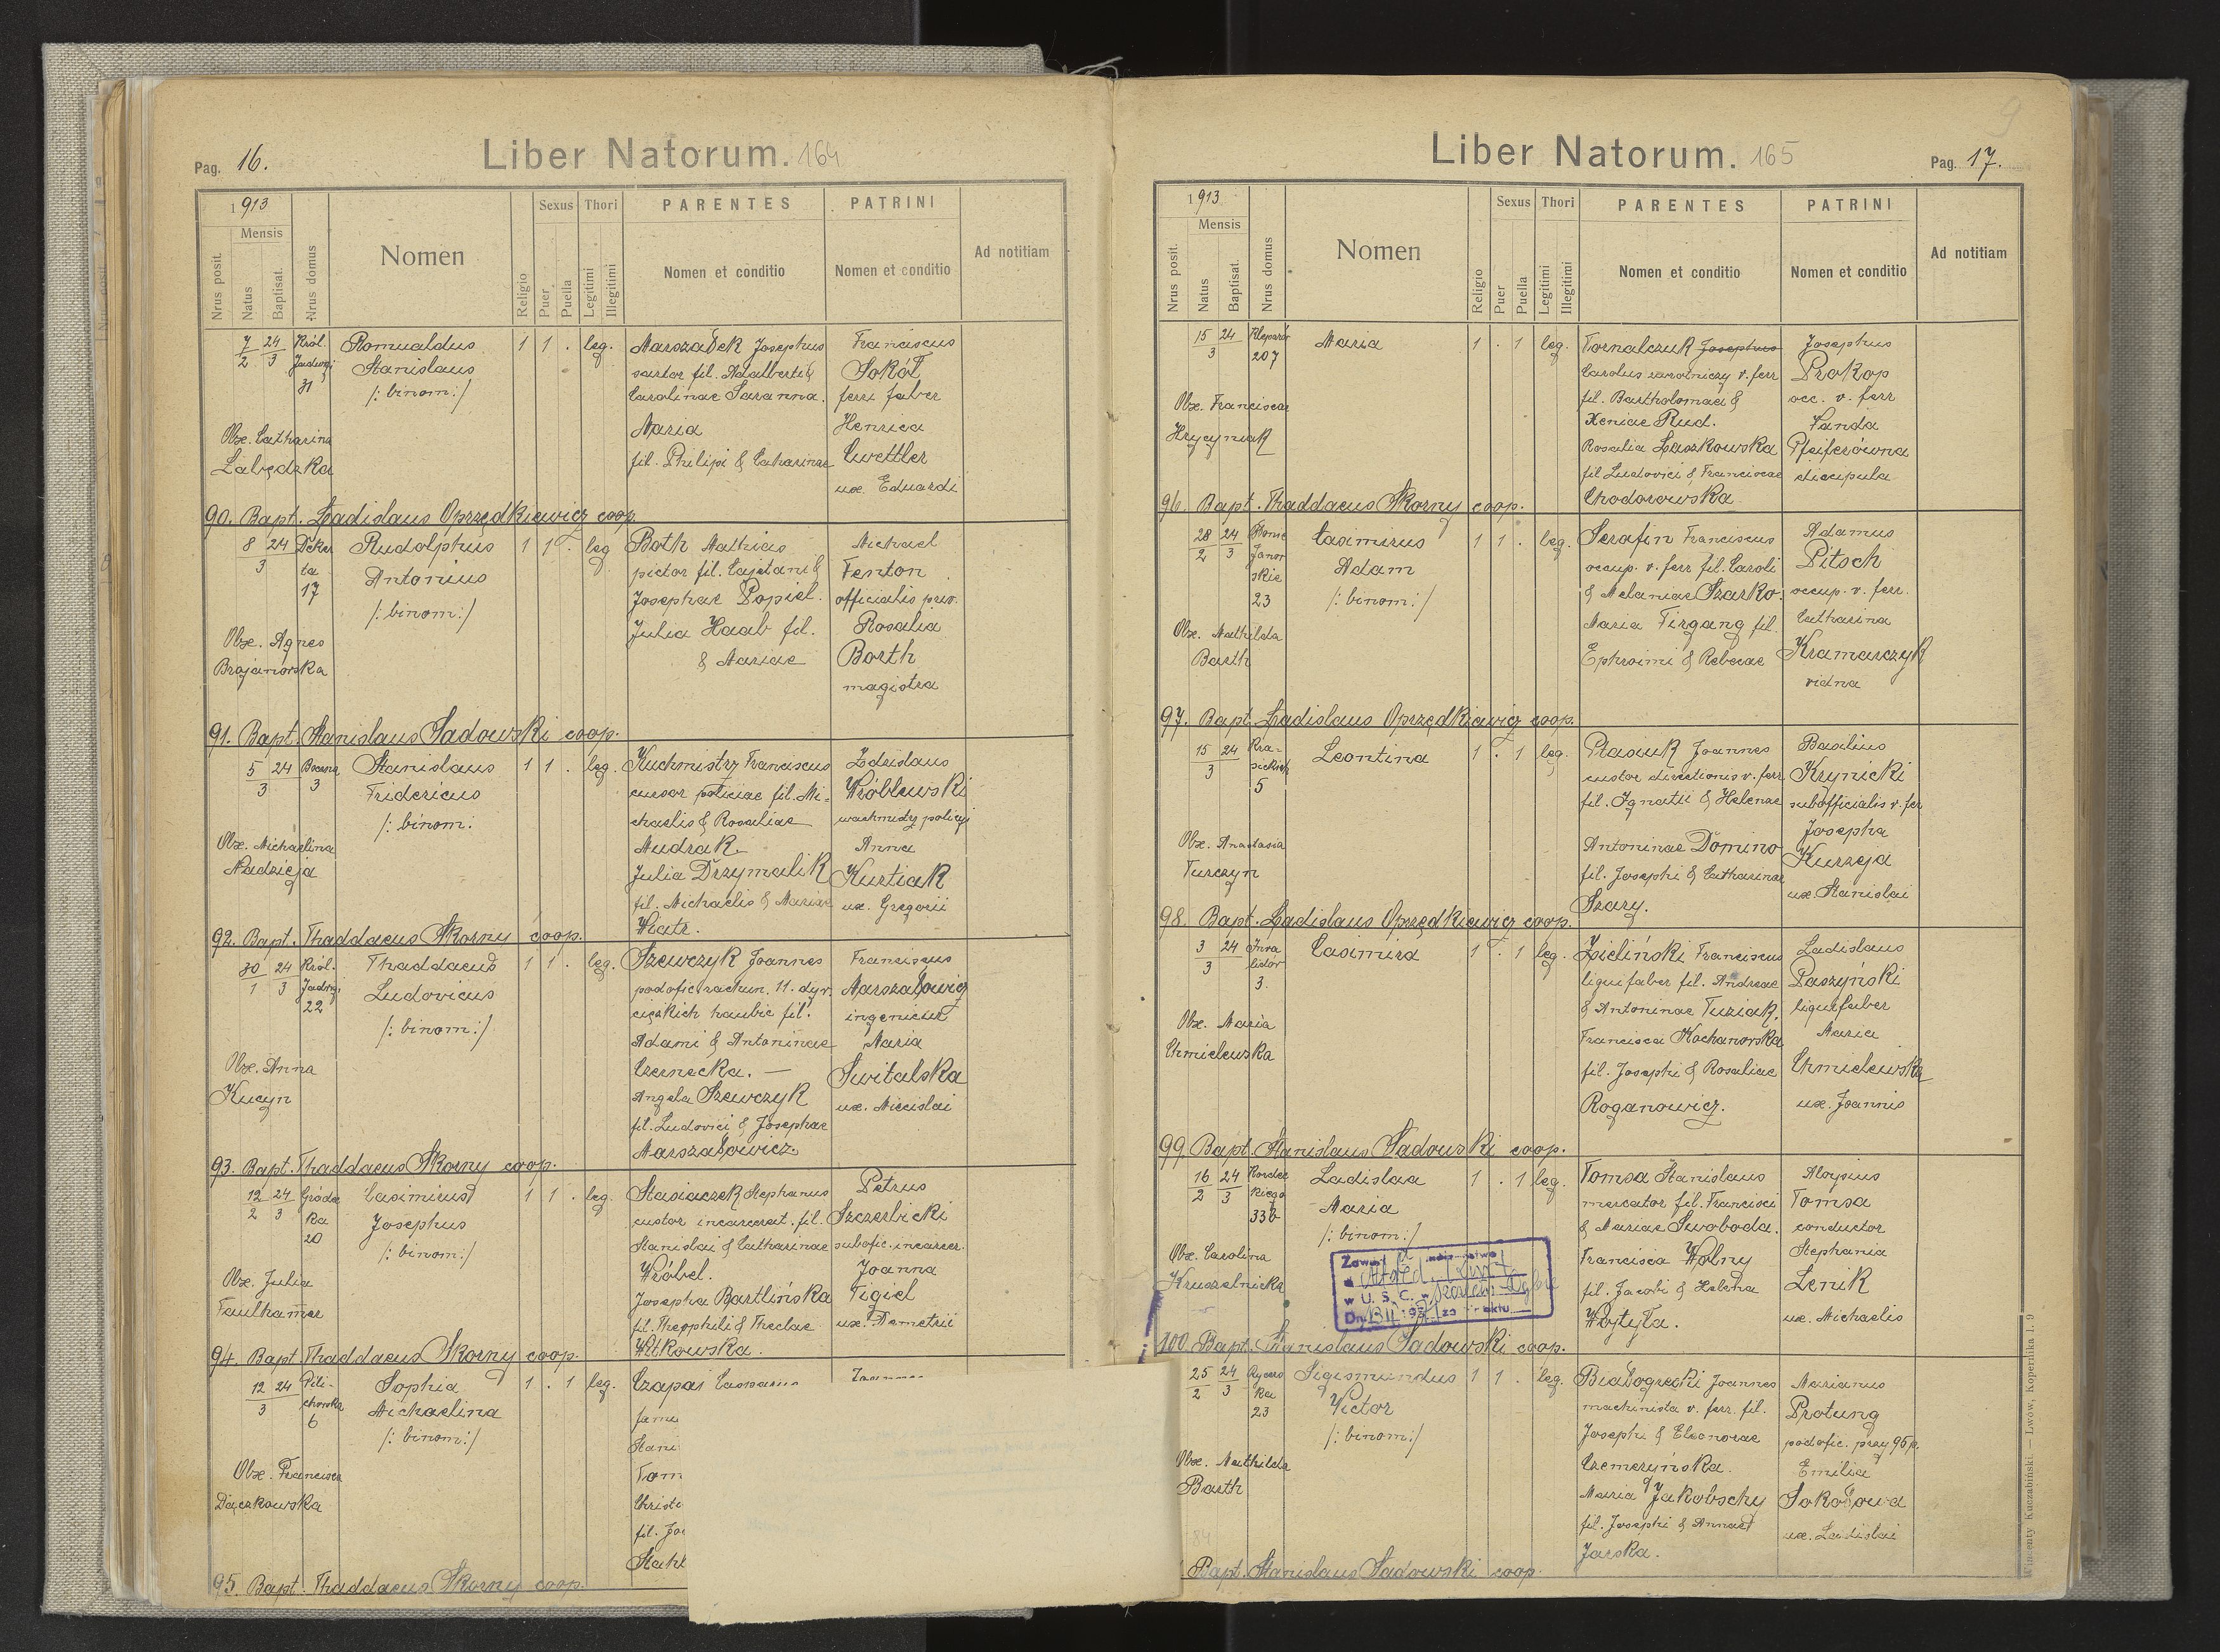 Pag. 16.
Liber Natorum. 164
1913
Mensis
Nrus posit.
Natus
Baptisat.
Nrus domus
Nomen
Religio
Sexus
Puer
Puella
Thori
Legitimi
Illegitimi
PARENTES
Nomen et conditio
PATRINI
Nomen et conditio
Ad notitiam
7/2 24/3 Król. Jadwigi 31
Romualdus
Stanislaus
/: binom:/
1 1 . leg.
Marszałek Josephus
sartor fil. Adalberti &
Carolinae Saranna.
Maria
fil. Philipi & Catharinae
Franciscus
Sokół
ferri faber
Henrica
Cwettler
ux. Eduardi
Obx. Catharina
Łabędzka
90. Bapt. Ladislaus Oprzędkiewicz coop.
8/3 24/3 Deker ta 17
Rudolphus
Antonius
/: binom:/
1 1 . leg
Both Mathias
pictor fil. Cajetani &
Josephae Popiel.
Julia Haab fil.
& Mariae
Michael
Fenton
officialis priv.
Rosalia
Borth
magistra
Obx. Agnes
Brajanowska
91. Bapt. Stanislaus Sadowski coop.
5/3 24/3 Boczna 3
Stanislaus
Fridericus
/: binom:
1 1 . leg.
Kuchmistrz Franciscus
cursor policiae fil. Mi=
chaelis & Rosaliae
Mudrak.
Julia Drzymalik
fil. Michaelis & Mariae
Wiatr.
Zdislaus
Wróblewski
wachmistrz policyi
Anna
Kurtiak
ux. Gregorii
Obx. Michaelina
Nadzieja
92. Bapt. Thaddaeus Skorny coop.
30/1 24/3 Król. Jadwigi 22
Thaddaeus
Ludovicus
/: binom:/
1 1 . leg.
Szewczyk Joannes
podofic. rachun. 11. dyw.
ciężkich haubic fil.
Adami & Antoninae
Czernecka. —
Angela Szewczyk
fil. Ludovici & Josephae
Marszałowicz.
Franciscus
Marszałowicz
ingenieur
Maria
Switalska
ux. Miecislai
Obx. Anna
Kucyn
93. Bapt. Thaddaeus Skorny coop.
12/2 24/3 Gróde ka 20
Casimirus
Josephus
/: binom:/
1 1 . leg.
Stasiaczek Stephanus
custor incarcerat. fil.
Stanislai & Catharinae
Wróbel.
Josepha Bartlińska
fil. Theophili & Theclae
Witkowska.
Petrus
Szczerbicki
subofic. incarcer.
Joanna
Figiel
ux. Demetrii
Obx. Julia
Faulhamer
94. Bapt. Thaddaeus Skorny coop.
12/3 24/3 Pili- chowska 6
Sophia
Michaelina
/: binom:/
1 . 1 leg.
Czapar Casparus
famu
Stani
Tom
Christi
fil. Jo
Stahl
Obx. Francisca
Dączkowska
95. Bapt. Thaddaeus Skorny coop.
Liber Natorum. 165
Pag. 17.
9
1913
Mensis
Nrus posit.
Natus
Baptisat.
Nrus domus
Nomen
Religio
Sexus
Puer
Puella
Thori
Legitimi
Illegitimi
PARENTES
Nomen et conditio
PATRINI
Nomen et conditio
Ad notitiam
15/3 24/3 Kleparów 207
Maria
1 . 1 leg.
Tornalczuk Josephus
Carolus zwrotniczy v. ferr
fil. Bartholomaei &
Xeniae Rud.
Rosalia Laszkowska
fil Ludovici & Franciscae
Chodorowska
Josephus
Prokop
occ. v. ferr
Vanda
Pfeiferówna
discipula
Obx. Franciscae
Hrycyniak
96. Bapt. Thaddaeus Skorny coop.
28/2 24/3 Błonie Janow skie 23
Casimirus
Adam
/: binom:/
1 1 . leg.
Serafin Franciscus
occup. v. ferr fil. Caroli
& Melaniae Szarko.
Maria Tirgang fil.
Ephroimi & Rebecae
Adamus
Pitsch
occup. v. ferr.
Catharina
Kramarczyk
vidna
Obx. Mathilda
Barth
97. Bapt. Ladislaus Oprzędkiewicz coop.
15/3 24/3 Kra- sickich 5
Leontina
1 . 1 leg.
Ptasuk Joannes
custor directionis v. ferr
fil. Ignatii & Helenae
Antoninae Domino
fil. Josephi & Catharinae
Szary.
Basilius
Krynicki
subofficialis v. fer
Josepha
Kurzeja
ux. Stanislai
Obx. Anastasia
Turczyn
98. Bapt. Ladislaus Oprzędkiewicz coop.
3/3 24/3 Inwa lidów 3.
Casimira
1 . 1 leg.
Zieliński Franciscus
ligni faber fil. Andreae
& Antoninae Tuziak.
Francisca Kochanowska
fil. Josephi & Rosaliae
Roganowicz.
Ladislaus
Paszyński
ligni faber
Maria
Chmielewska
ux. Joannis
Obx. Maria
Chmielewska
99. Bapt. Stanislaus Sadowski coop.
16/2 24/3 Kordec kiego 33b
Ladislaa
Maria
/: binom:/
1 . 1 leg.
Tomsa Stanislaus
mercator fil. Francisci
& Mariae Swoboda.
Francisca Wolny
fil. Jacobi & Helena
Wojtyła.
Aloysius
Tomsa
conductor
Stephania
Lenik
ux. Michaelis
Obx. Carolina
Kruszelnicka
w U. S. C. w
100. Bapt. Stanislaus Sadowski coop.
25/2 24/3 Rycers ka 23
Sigismundus
Victor
/: binom:/
1 1 . leg.
Białogrecki Joannes
machinista v. ferr. fil.
Josephi & Eleonorae
Czemeryńska.
Maria Jakobschy
fil. Josephi & Annae
Jarska.
Marianus
Protung
podofic. przy 95 p.
Emilia
Sokołowa
ux. Ladislai
Obx. Mathilda
Barth
84
Bapt. Stanislaus Sadowski coop.
Wincenty Kuczabiński — Lwów, Kopernika l. 9